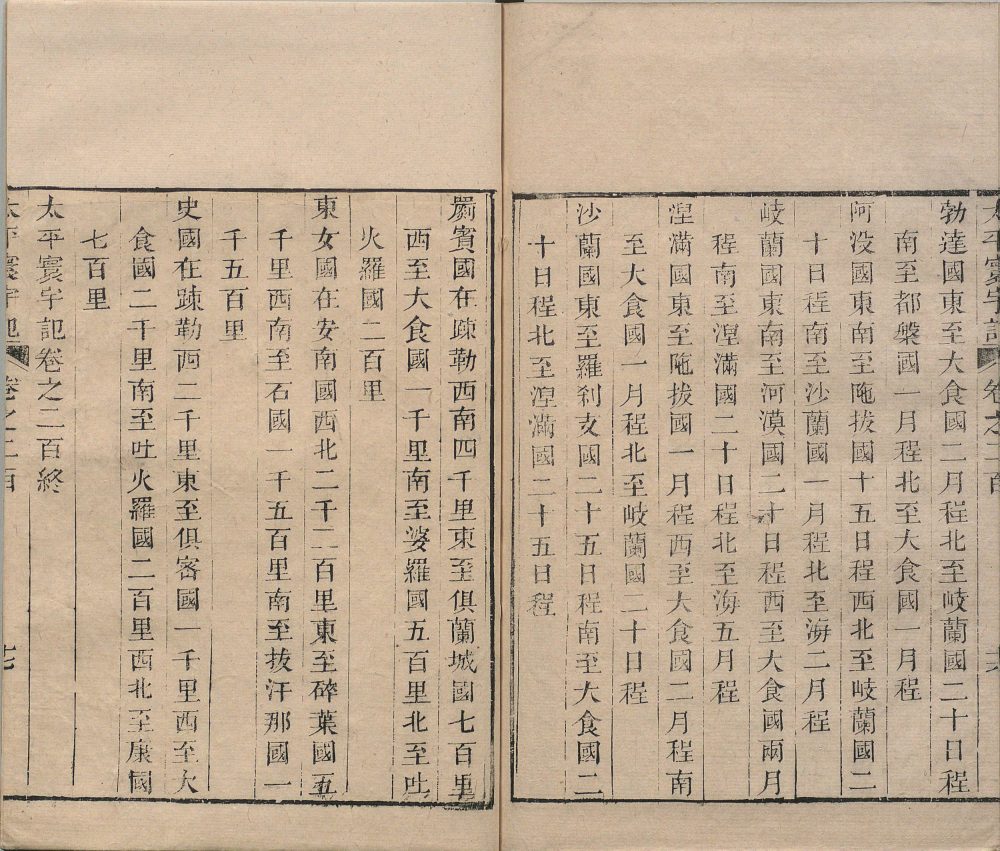 太平寰宇記 卷之二百 十六
勃達國東至大食國二月程北至岐蘭國二十日程
南至都槃國一月程北至大食國一月程
阿没國東南至陁拔國十五日程西北至岐蘭國二
十日程南至沙蘭國一月程北至海二月程
岐蘭國東南至河漠國二十日程西至大食國兩月
程南至湼滿國二十日程北至海五月程
湼滿國東至陁拔國一月程西至大食國二月程南
至大食國一月程北至岐蘭國二十日程
沙蘭國東至羅刹支國二十五日程南至大食國二
十日程北至湼滿國二十五日程
罽賓國在疎勒西南四千里東至俱蘭城國七百里
西至大食國一千里南至婆羅國五百里北至吐
火羅國二百里
東女國在安南國西北二千二百里東至碎葉國五
千里西南至石國一千五百里南至拔汗那國一
千五百里
史國在踈勒西二千里東至俱密國一千里西至大
食國二千里南至吐火羅國二百里西北至康國
七百里
太平寰宇記卷之二百終
太平寰宇記 卷之二百 十七